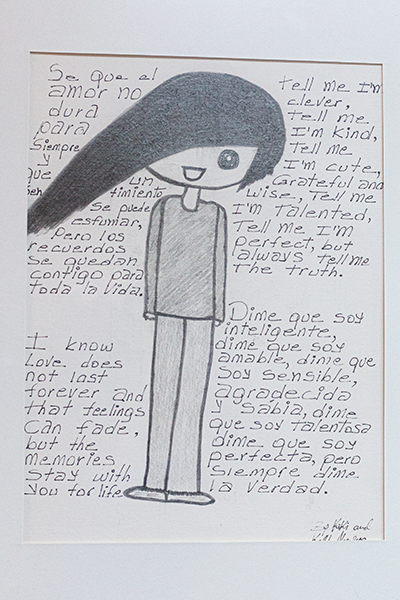 Se que el
amor no
dura
para
Siempre
y
que
sen un timiento
se puede
esfumar,
Pero los
recuerdos
se quedan
contigo para
toda la vida.
I know
Love does
not last
forever and
that feelings
can fade,
but the
memories
stay with
you for life
tell me I'm
clever,
tell me
I'm kind,
tell me
I'm cute,
Grateful and
wise, Tell me
I'm Talented,
Tell me I'm
perfect, but
always Tell me
The truth.
Dime que soy
inteligente,
dime que soy
amable, dime que
soy sensible,
agradecida
y sabia, dime
que soy talentosa
dime que soy
perfecta, pero
siempre dime
la verdad.
and